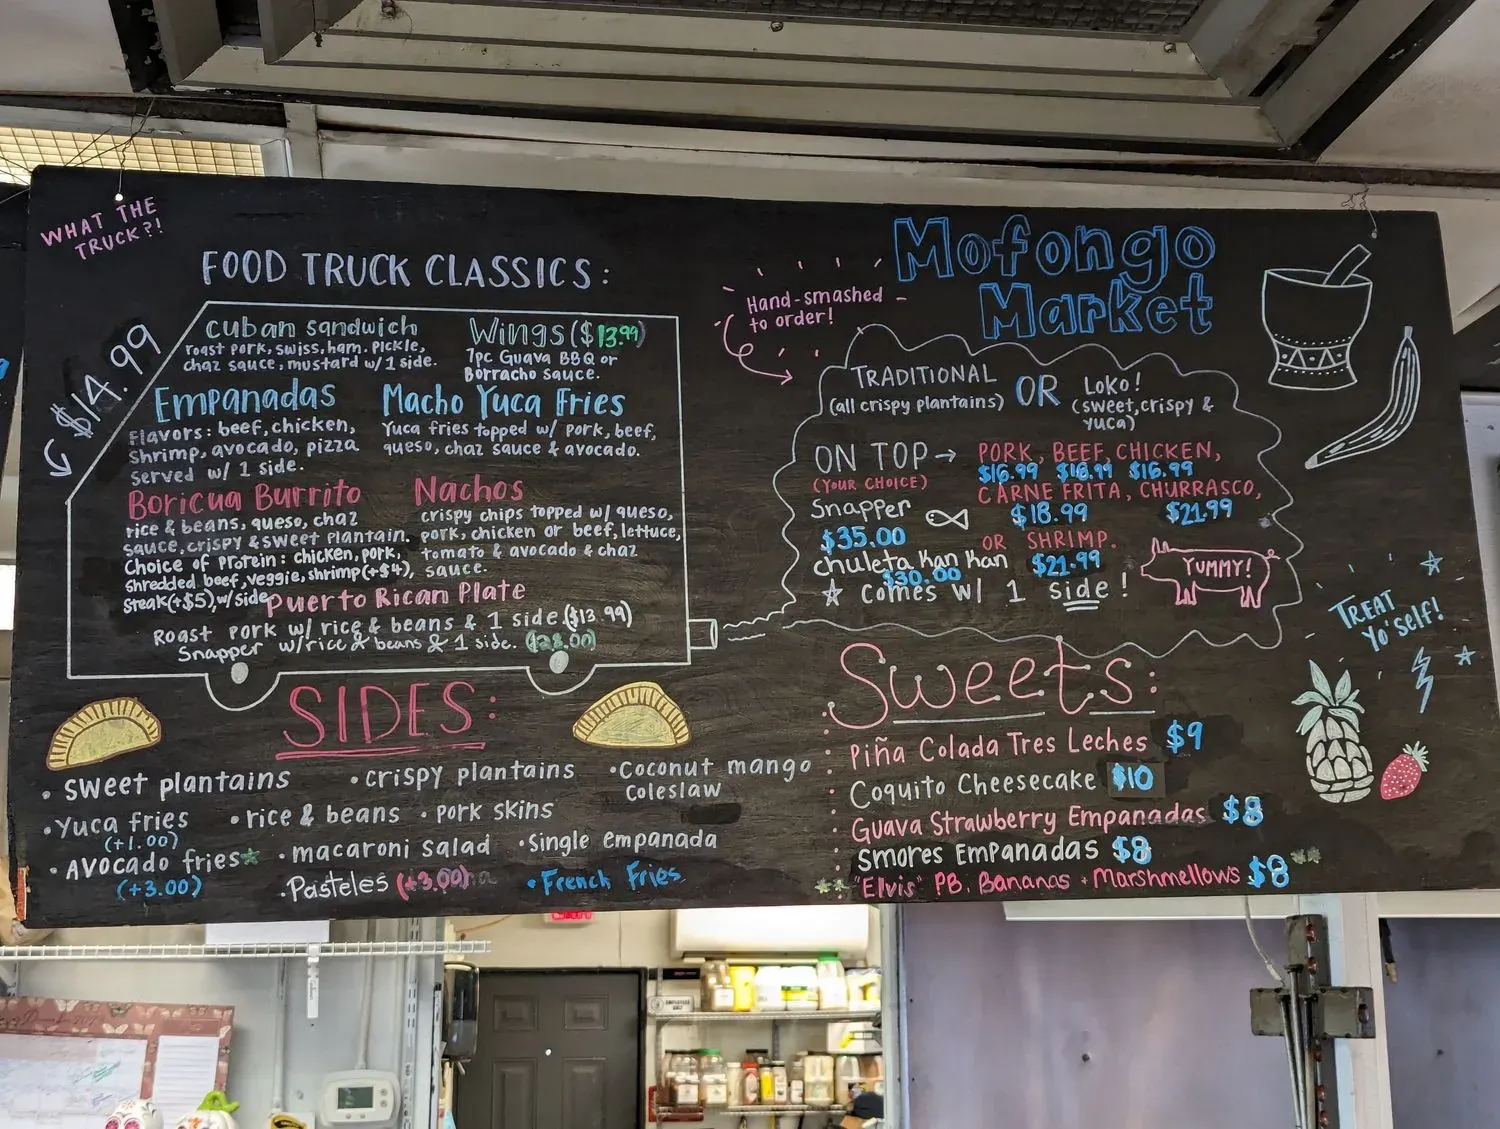 WHAT THE
TRUCK?!
FOOD TRUCK CLASSICS:
$14.99
Cuban sandwich
roast pork, swiss, ham, pickle,
chaz sauce, mustard w/ 1 side.
Wings ($13.99)
7pc Guava BBQ or
Borracho sauce.
Empanadas
Flavors: beef, chicken,
shrimp, avocado, pizza
served w/ 1 side.
Macho Yuca Fries
Yuca fries topped w/ pork, beef,
queso, chaz sauce & avocado.
Boricua Burrito
rice & beans, queso, chaz
sauce, crispy & sweet plantain.
Choice of protein: chicken, pork,
shredded beef, veggie, shrimp (+$4),
steak (+$5), w/ side
Nachos
crispy chips topped w/ queso,
pork, chicken or beef, lettuce,
tomato & avocado & chaz
sauce.
Puerto Rican Plate
Roast pork w/ rice & beans & 1 side. ($13.99)
Snapper w/ rice & beans & 1 side. ($28.00)
SIDES:
• sweet plantains
• crispy plantains
• Coconut mango
coleslaw
• Yuca fries
(+1.00)
• rice & beans
• pork skins
• Avocado fries
(+3.00)
• macaroni salad
• Single empanada
• Pasteles (+3.00)
• French Fries
Mofongo
Market
Hand-smashed
to order!
TRADITIONAL
(all crispy plantains)
OR
Loko!
(sweet, crispy &
yuca)
ON TOP →
(YOUR CHOICE)
PORK, BEEF, CHICKEN,
$16.99 $18.99 $16.99
CARNE FRITA, CHURRASCO,
$18.99 $21.99
OR SHRIMP.
$21.99
Snapper
$35.00
chuleta Kan Kan
$30.00
☆ comes w/ 1 side!
YUMMY!
TREAT
Yo'self!
Sweets:
Piña Colada Tres Leches $9
Coquito Cheesecake $10
Guava Strawberry Empanadas $8
Smores Empanadas $8
"Elvis" PB, Bananas + Marshmellows $8